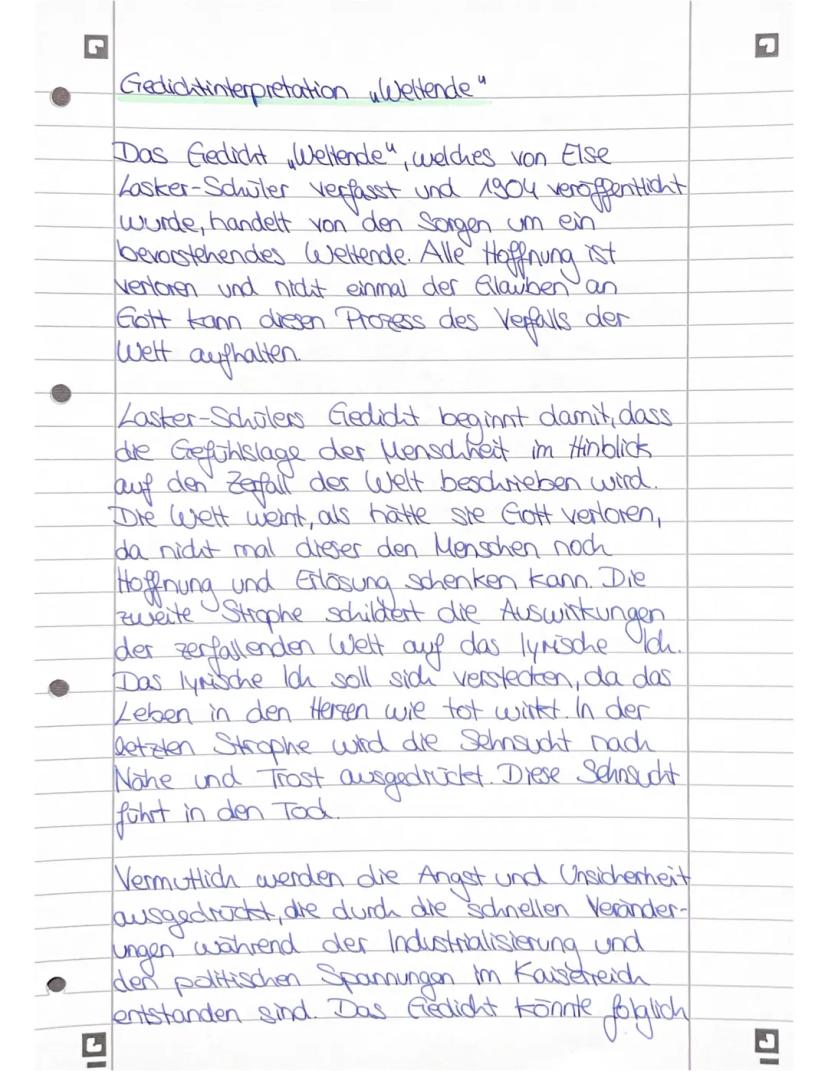 Gedichtinterpretation „Weltende“
Das Gedicht „Weltende“, welches von Else
Lasker-Schüler verfasst und 1904 veröffentlicht
wurde, handelt von den Sorgen um ein
bevorstehendes Weltende. Alle Hoffnung ist
verloren und nicht einmal der Glauben an
Gott kann diesen Prozess des Verfalls der
Welt aufhalten.
Lasker-Schülers Gedicht beginnt damit, dass
die Gefühlslage der Menschheit im Hinblick
auf den Zerfall der Welt beschrieben wird.
Die Welt weint, als hätte sie Gott verloren,
da nicht mal dieser den Menschen noch
Hoffnung und Erlösung schenken kann. Die
zweite Strophe schildert die Auswirkungen
der zerfallenden Welt auf das lyrische Ich.
Das lyrische Ich soll sich verstecken, da das
Leben in den Herzen wie tot wirkt. In der
letzten Strophe wird die Sehnsucht nach
Nähe und Trost ausgedrückt. Diese Sehnsucht
führt in den Tod.
Vermutlich werden die Angst und Unsicherheit
ausgedrückt, die durch die schnellen Veränder-
ungen während der Industrialisierung und
den politischen Spannungen im Kaiserreich
entstanden sind. Das Gedicht könnte folglich